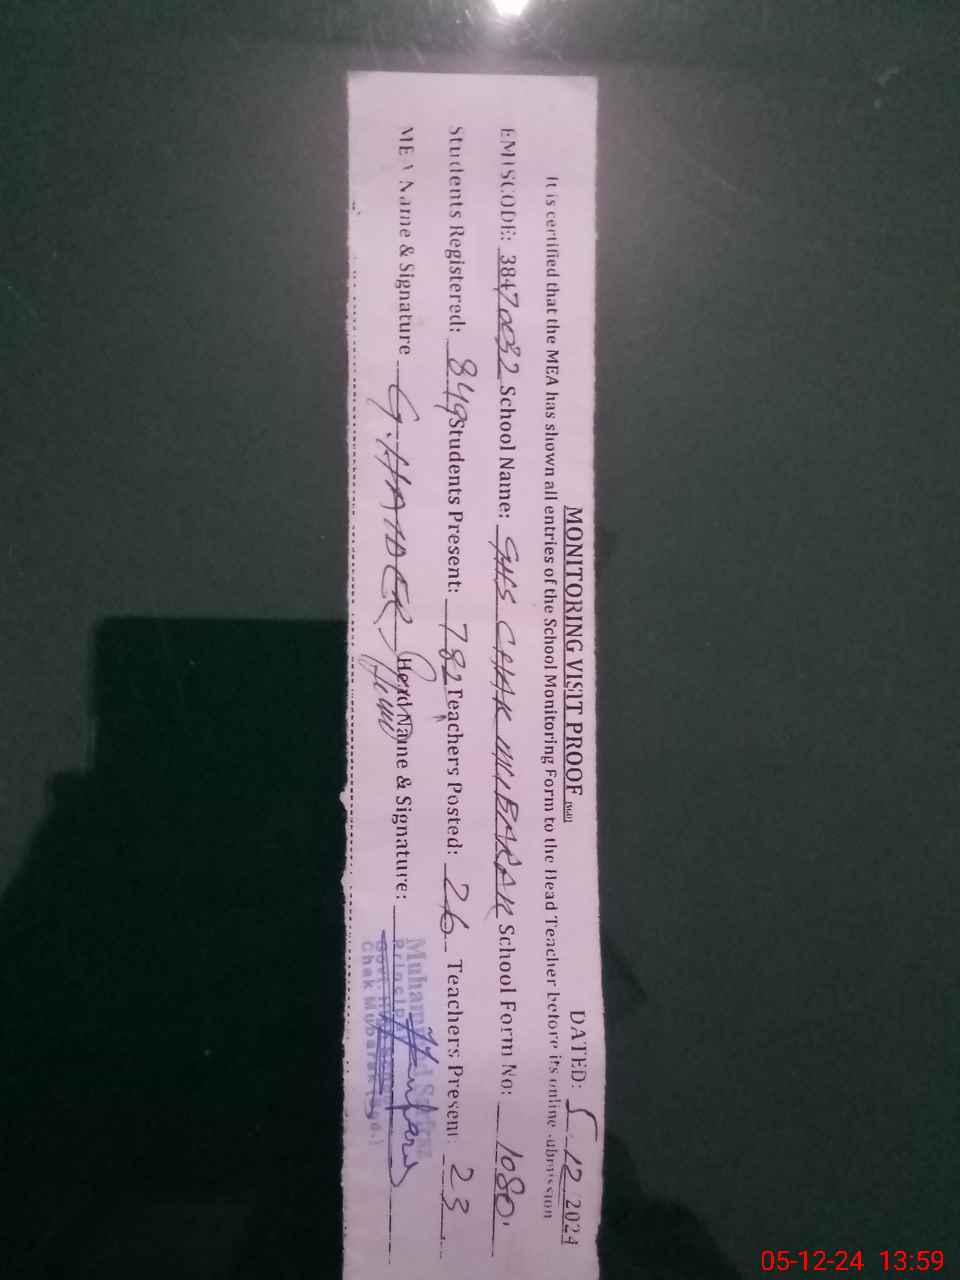 MONITORING VISIT PROOF
DATED: 5.12.2024
It is certified that the MEA has shown all entries of the School Monitoring Form to the Head Teacher before its online submission
EMISCODE: 38470032 School Name: GHS CHAK MUBARAK School Form No: 1080
Students Registered: 849 Students Present: 782 Teachers Posted: 26 Teachers Present: 23
MEA Name & Signature G.HAIDER Head Name & Signature:
Principal
Chak Mubarak
05-12-24 13:59